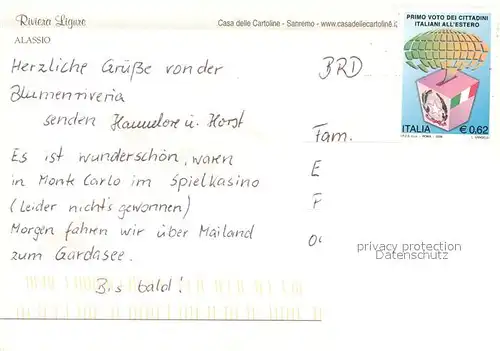 Riviera Ligure
ALASSIO
Casa delle Cartoline - Sanremo - www.casadellecartoline.i
PRIMO VOTO DEI CITTADINI
ITALIANI ALL'ESTERO
ITALIA € 0,62
Herzliche Grüße von der
Blumenriveria
senden Hannelore u. Horst
Es ist wunderschön, waren
in Monte Carlo im Spielkasino
(Leider nicht's gewonnen)
Morgen fahren wir über Mailand
zum Gardasee.
Bis bald!
BRD
Fam.
E
F
privacy protection
Datenschutz